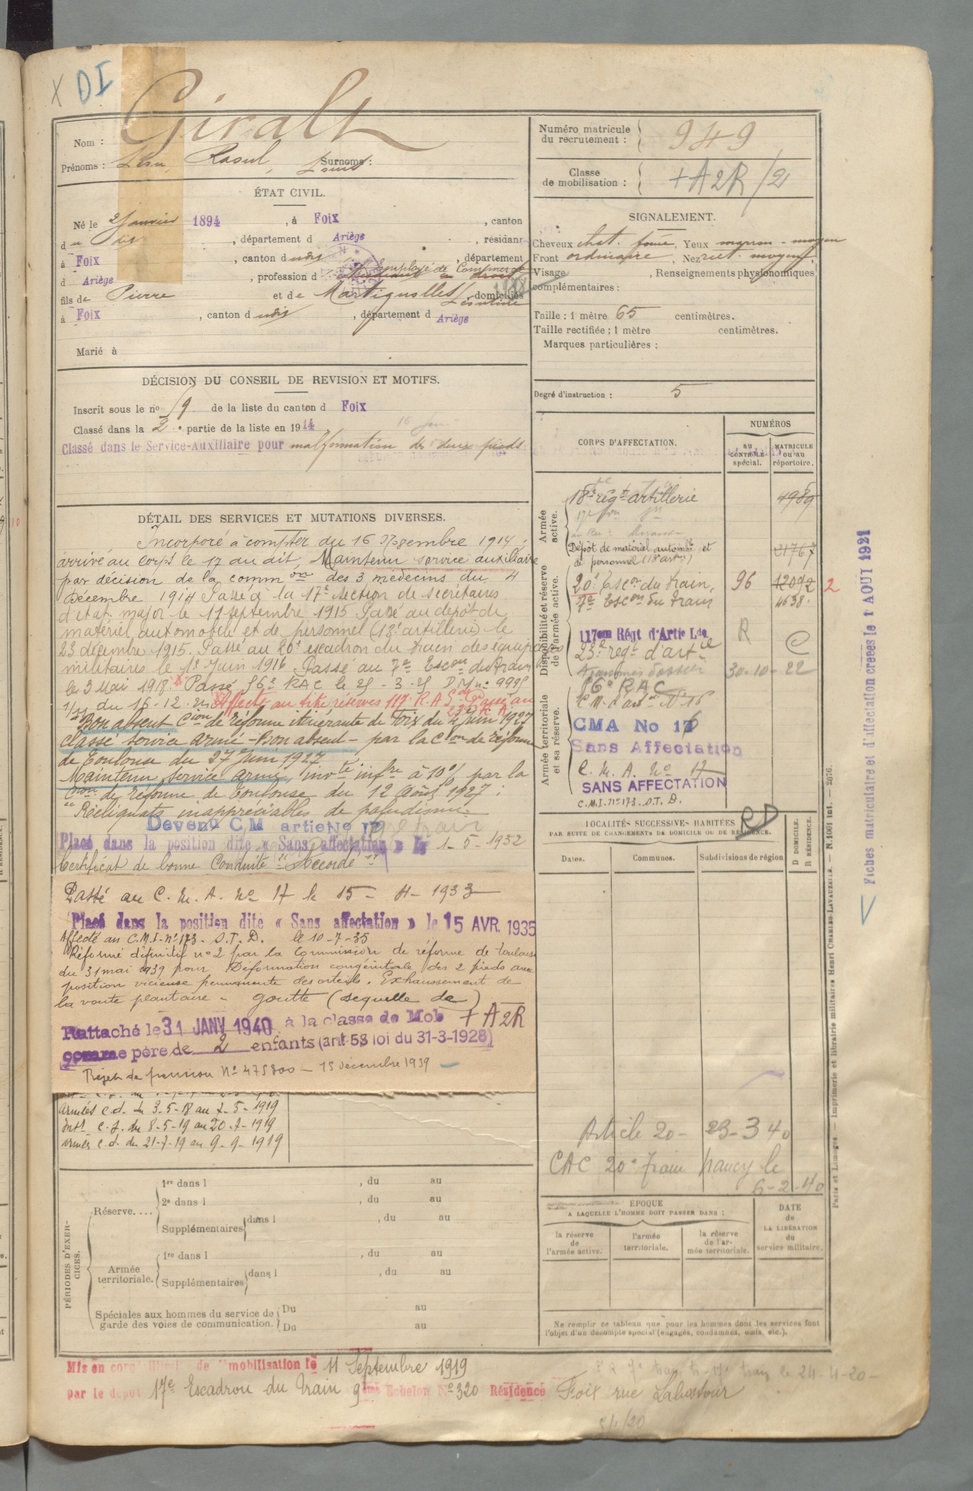 X DI
Giralt
Nom :
Prénoms : Léon, Raoul, Louis Surnoms :
Numéro matricule du recrutement : 949
Classe de mobilisation : + A2R/21
ÉTAT CIVIL.
Né le 2 janvier 1894, à Foix, canton
d dis, département d Ariège, résidant
à Foix, canton d udis, département
d Ariège, profession d employé de Commerce
fils de Pierre et de Martignolles domiciliés
à Foix, canton d udis, département d Ariège
Marié à
SIGNALEMENT.
Cheveux chat. foncé, Yeux marron-moyen
Front ordinaire, Nez rect. moyen,
Visage, Renseignements physionomiques
complémentaires :
Taille : 1 mètre 65 centimètres.
Taille rectifiée : 1 mètre centimètres.
Marques particulières :
Degré d'instruction : 5
DÉCISION DU CONSEIL DE REVISION ET MOTIFS.
Inscrit sous le no 19 de la liste du canton d Foix
Classé dans la 2e partie de la liste en 1914
Classé dans le Service-Auxiliaire pour malformation des deux pieds
DÉTAIL DES SERVICES ET MUTATIONS DIVERSES.
Incorporé à compter du 16 décembre 1914 ;
arrivé au corps le 17 du dit, Maintenu service auxiliaire
par décision de la comm on des 3 médecins du 4
Décembre 1914 Passé à la 17e section de secrétaires
d'état major le 11 septembre 1915 Passé au dépôt de
matériel automobile et de personnel (18e artillerie) le
23 décembre 1915. Passé au 20e escadron du train des équipages
militaires le 1er Juin 1916. Passé au 7e Escon du train
le 3 Mai 1918. Passé 56e RAC le 25-3-25
du 15-12-25 Affecté au titre réserves 117e R A
Bon absent Cion de réforme itinérante de Foix du 4 juin 1927
classé service armé - Bon absent - par la Cion de réforme
de Toulouse du 27 Juin 1927
Maintenu service armé, inv té infre à 10% par la
Cion de réforme de Toulouse du 12 Août 1927 ;
"Reliquats inappréciables de paludisme
Devenu C M artie No 17
Placé dans la position dite « Sans affectation » le 1-5-1932
Certificat de bonne Conduite "Accordé"
Passé au C. M. A. No 17 le 15-4-1933
Placé dans la position dite « Sans affectation » le 15 AVR 1935
Affecté au C.M.I. no 173. S.T.D. le 10-7-35
Réformé définitif no 2 par la Commission de réforme de toulouse
du 31 mai 1939 pour Déformation congénitale des 2 pieds avec
position vicieuse permanente des orteils. Exhaussement de
la voute plantaire - goutte (séquelle de)
Rattaché le 31 JANV 1940 à la classe de Mob + A2R
comme père de 2 enfants (art 58 loi du 31-3-1928)
Rejet de pension No 475800 - 15 décembre 1939
armées c.d. du 3-5-18 au 7-5-1919
Intr c.d. du 8-5-19 au 20-7-1919
armées c.d. du 21-7-19 au 9-9-1919
CORPS D'AFFECTATION.
NUMÉROS
AU CONTRÔLE spécial.
MATRICULE ou au répertoire.
Armée active.
Disponibilité et réserve de l'armée active.
Armée territoriale et sa réserve.
18e régt artillerie 4989
Dépôt de matériel automb. et de personnel (18e artie) 21767
20e Escon du train, 96 12092 2
7e Escon du train 4638
117em Régt d'Artie Lde R
23e régt d'artie
30-10-22
56e RAC
CMA No 17
Sans Affectation
C. M. A. No 17
SANS AFFECTATION
C.M.I. no 173. S.T.D.
Fiches matriculaire et d'affectation créées le 1 AOUT 1921
RD
LOCALITÉS SUCCESSIVES HABITÉES
PAR SUITE DE CHANGEMENTS DE DOMICILE OU DE RÉSIDENCE.
Dates.
Communes.
Subdivisions de région
D DOMICILE. R RÉSIDENCE.
Article 20 - 23-3 40
CAC 20e train nancy le
6-2-40
ÉPOQUE
A LAQUELLE L'HOMME DOIT PASSER DANS :
DATE de LA LIBÉRATION du service militaire.
la réserve de l'armée active.
l'armée territoriale.
la réserve de l'armée territoriale.
Ne remplir ce tableau que pour les hommes dont les services font
l'objet d'un décompte spécial (engagés, condamnés, omis, etc.).
PÉRIODES D'EXERCICES.
Réserve....
1re dans l , du au
2e dans l , du au
Supplémentaires dans l , du au
Armée territoriale.
1re dans l , du au
Supplémentaires dans l , du au
Spéciales aux hommes du service de garde des voies de communication.
Du au
Du au
Paris et Limoges. — Imprimerie et librairie militaires Henri CHARLES-LAVAUZELLE. — N. 1001 int. — 2076.
Mis en congé illimité de démobilisation le 11 Septembre 1919
par le dépôt 17e Escadron du Train 9ème Echelon No 320 Résidence Foix rue Labistour